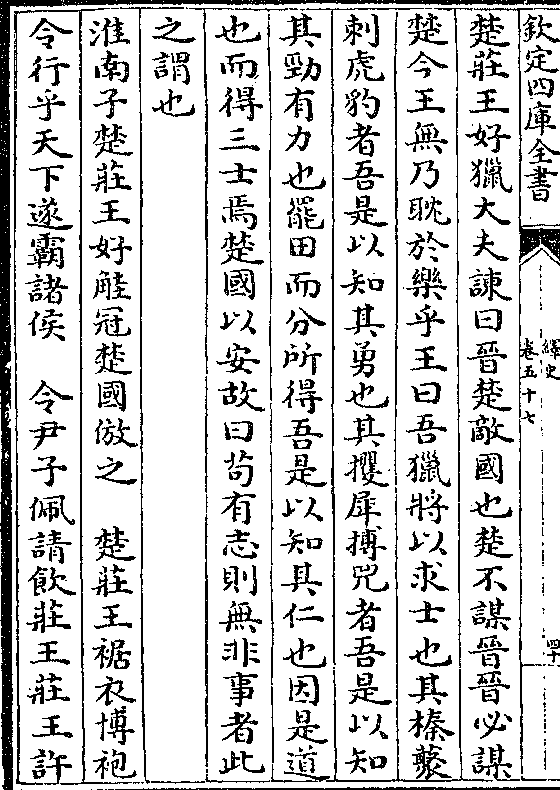 欽定四庫全書
繹史
卷五十七
四十
楚莊王好獵大夫諫曰晉楚敵國也楚不謀晉晉必謀
楚今王無乃耽於樂乎王曰吾獵將以求士也其榛藂
刺虎豹者吾是以知其勇也其攫犀搏兕者吾是以知
其勁有力也罷田而分所得吾是以知其仁也因是道
也而得三士焉楚國以安故曰苟有志則無非事者此
之謂也
淮南子楚莊王好觟冠楚國倣之　楚莊王裾衣博袍
令行乎天下遂霸諸侯　令尹子佩請飲莊王莊王許